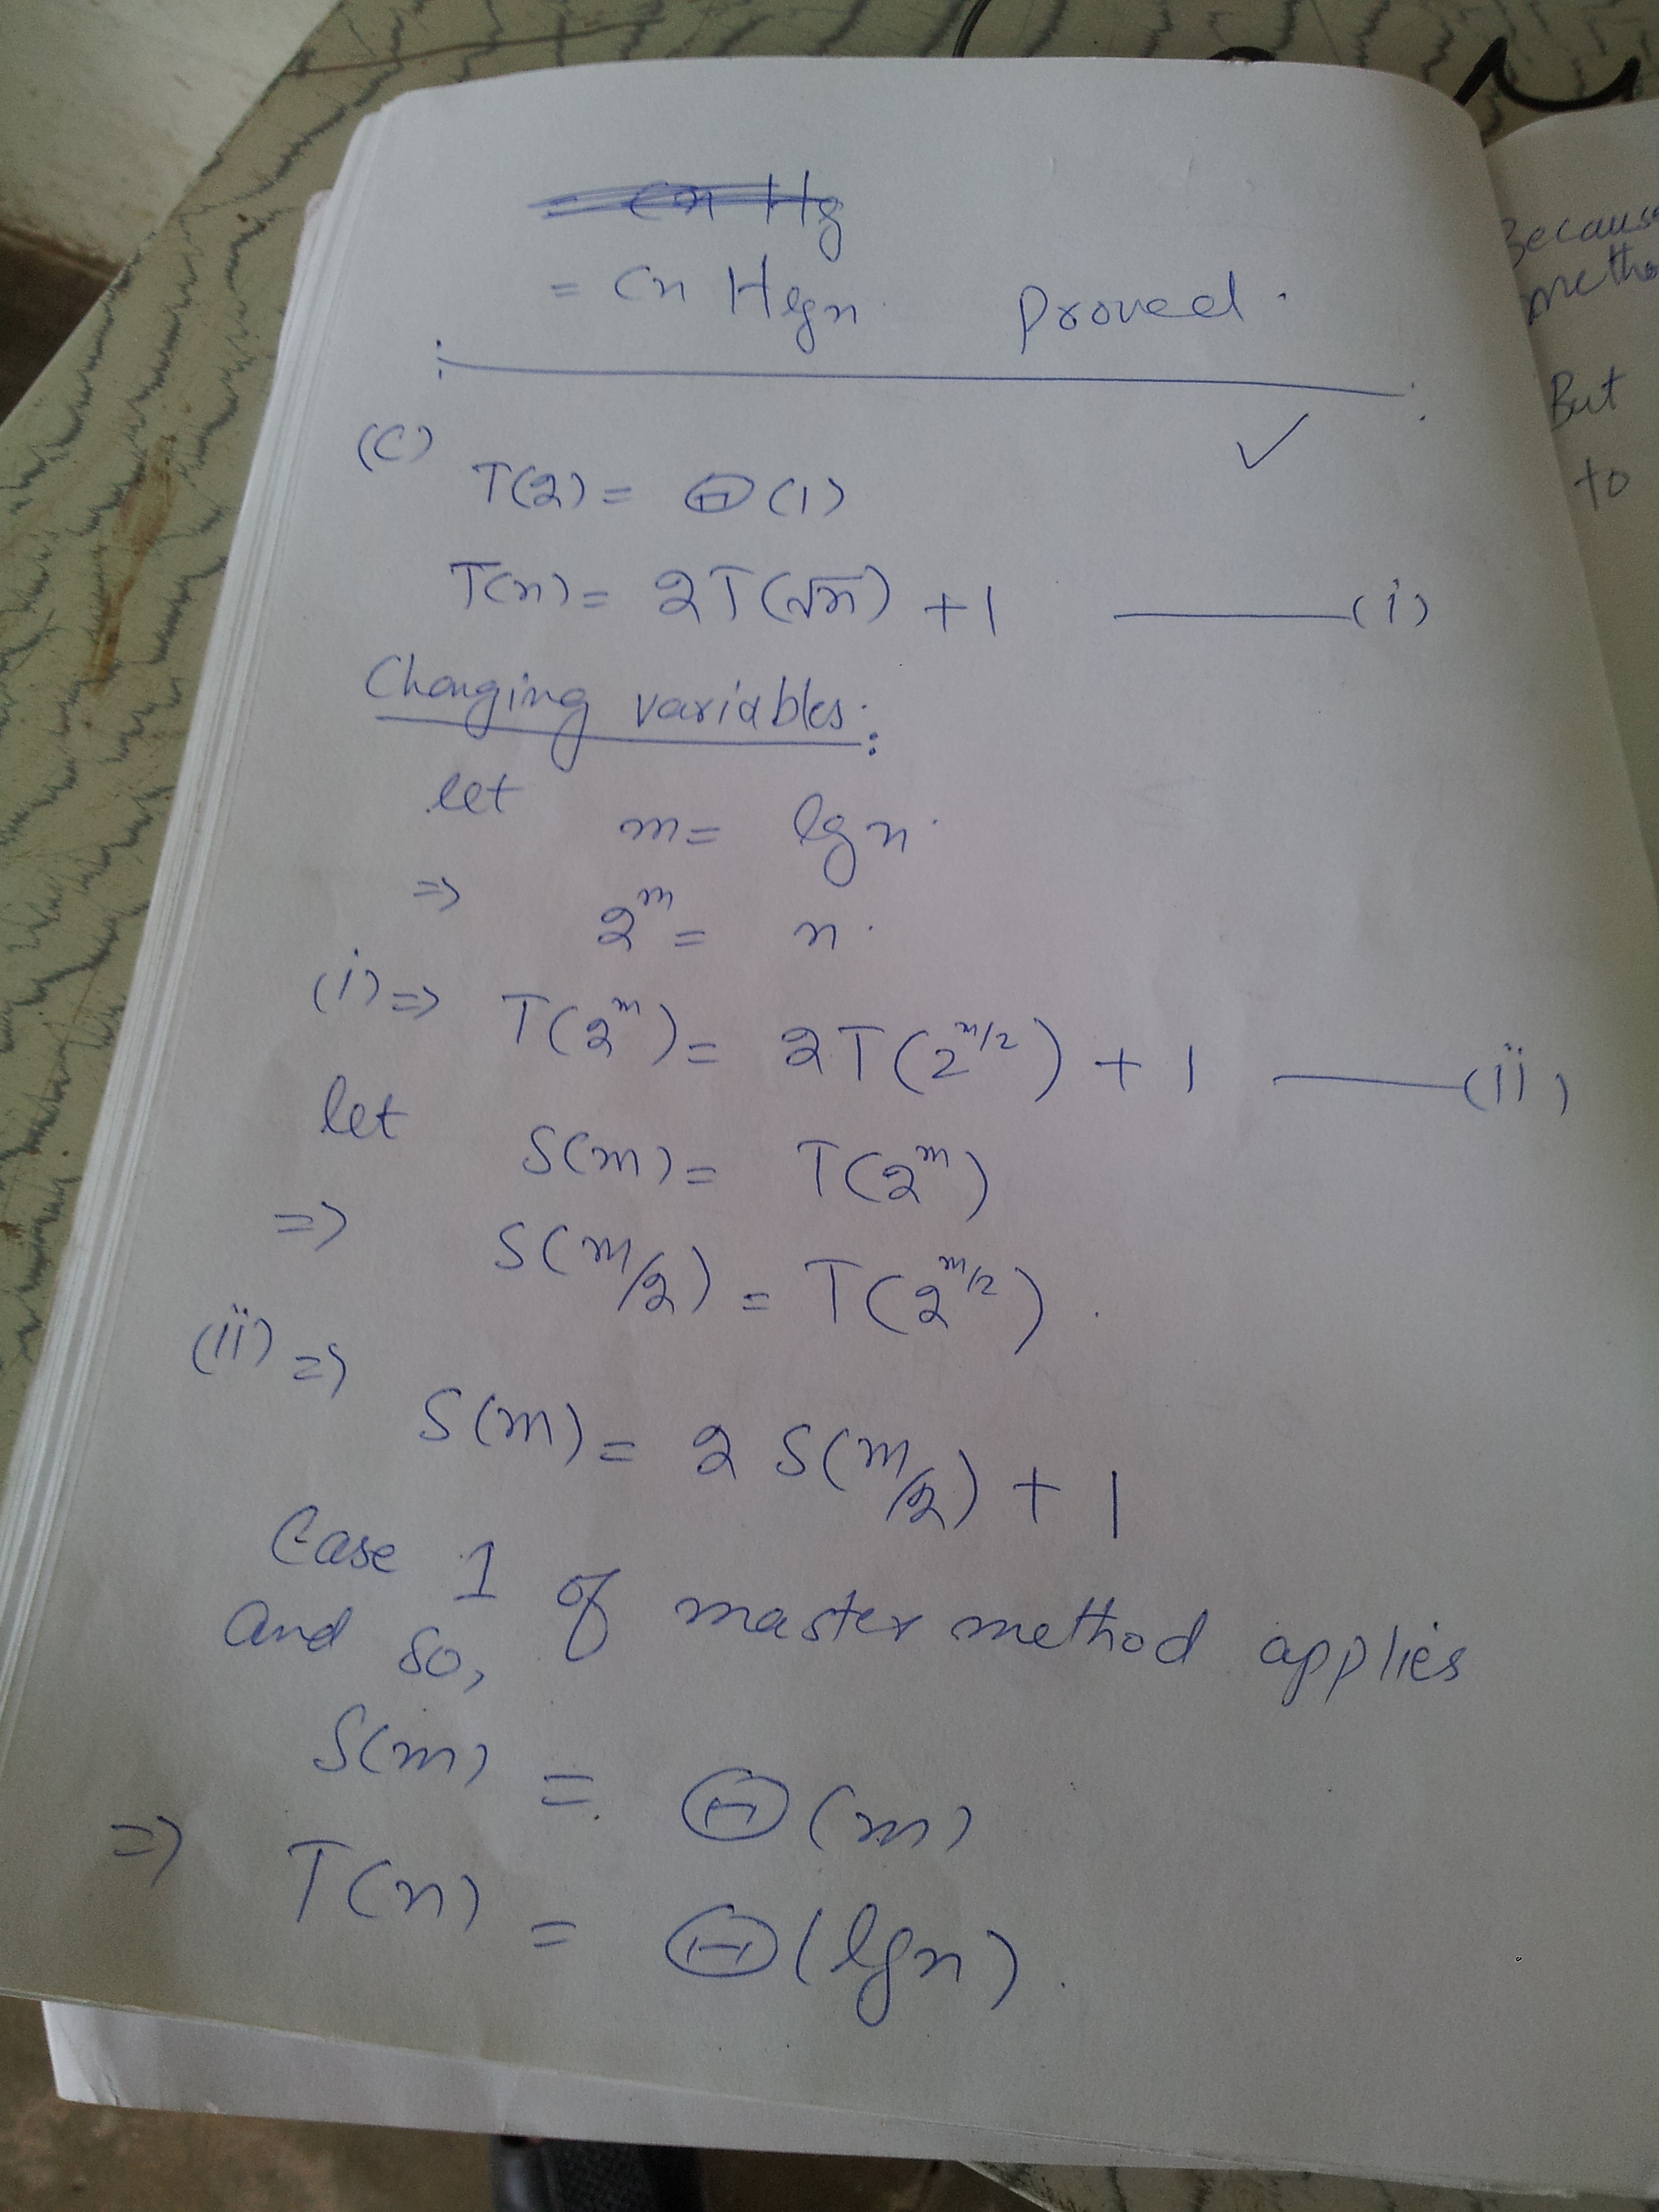 = cn Hgn proved.
(c) T(2) = Θ(1)
T(n) = 2T(√n) + 1 —— (i)
Changing variables:
let m = lg n.
=> 2^m = n.
(i) => T(2^m) = 2T(2^m/2) + 1 —— (ii)
let S(m) = T(2^m)
=> S(m/2) = T(2^m/2).
(ii) => S(m) = 2 S(m/2) + 1
Case 1 of master method applies
and so,
S(m) = Θ(m)
=> T(n) = Θ(lg n).
But
to